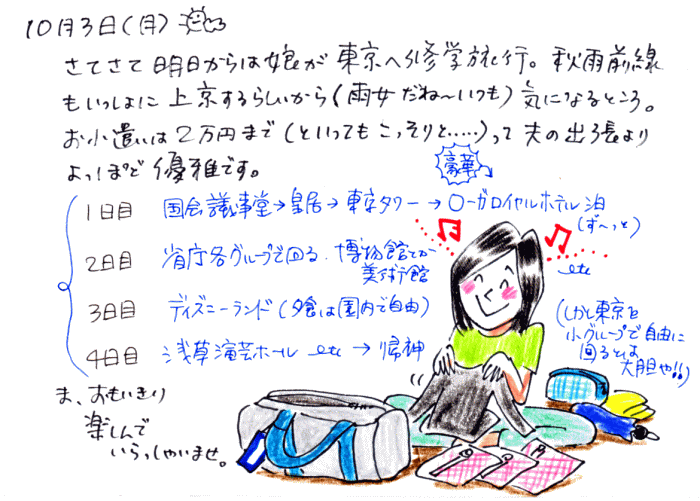 10月3日(月)
さてさて明日からは娘が東京へ修学旅行。秋雨前線
もいっしょに上京するらしいから(雨女だね〜いつも)気になるところ。
お小遣いは2万円まで(といってもこっそりと……)って夫の出張より
よっぽど優雅です。
豪華
1日目 国会議事堂→皇居→東京タワー→○ーガロイヤルホテル泊
(ず〜っと)
2日目 省庁各グループで回る。博物館とか
美術館
etc
3日目 ディズニーランド(夕食は園内で自由)
(しかし東京を
小グループで自由に
回るとは
大胆や!!)
4日目 浅草演芸ホール etc → 帰神
ま、おもいきり
楽しんで
いらっしゃいませ。